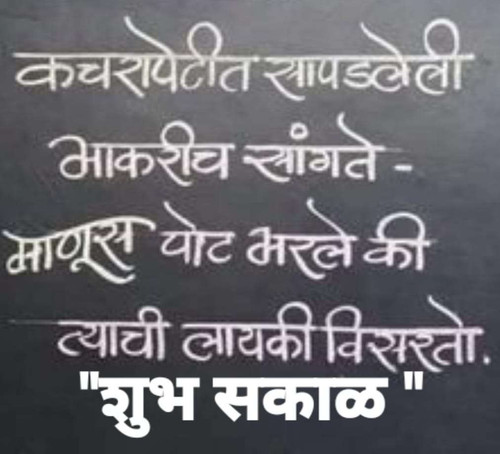 कचरापेटीत सापडलेली
भाकरीच सांगते -
माणूस पोट भरले की
त्याची लायकी विसरतो.
"शुभ सकाळ "